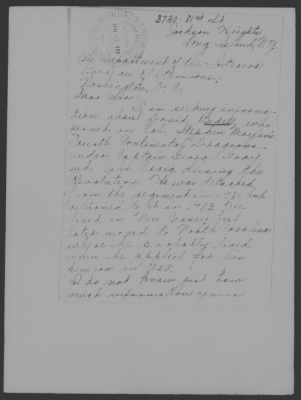 3730 - 81st St.
Jackson Heights
Long Island, N.Y.
The Department of the Interior
Bureau of Pensions,
Washington, D.C.
Dear Sirs:
I am seeking informa-
tion about David, who
served in Col. Stephen Moylan's
Fourth Continental Dragoons
under Captain
and during the
Revolution. He was detached
from the regiment in 1781 and
returned to it in 1782. He
lived in New Jersey but
later moved to North Carolina
where he probably lived
when he applied for his
pension in
I do not know just how
much information you